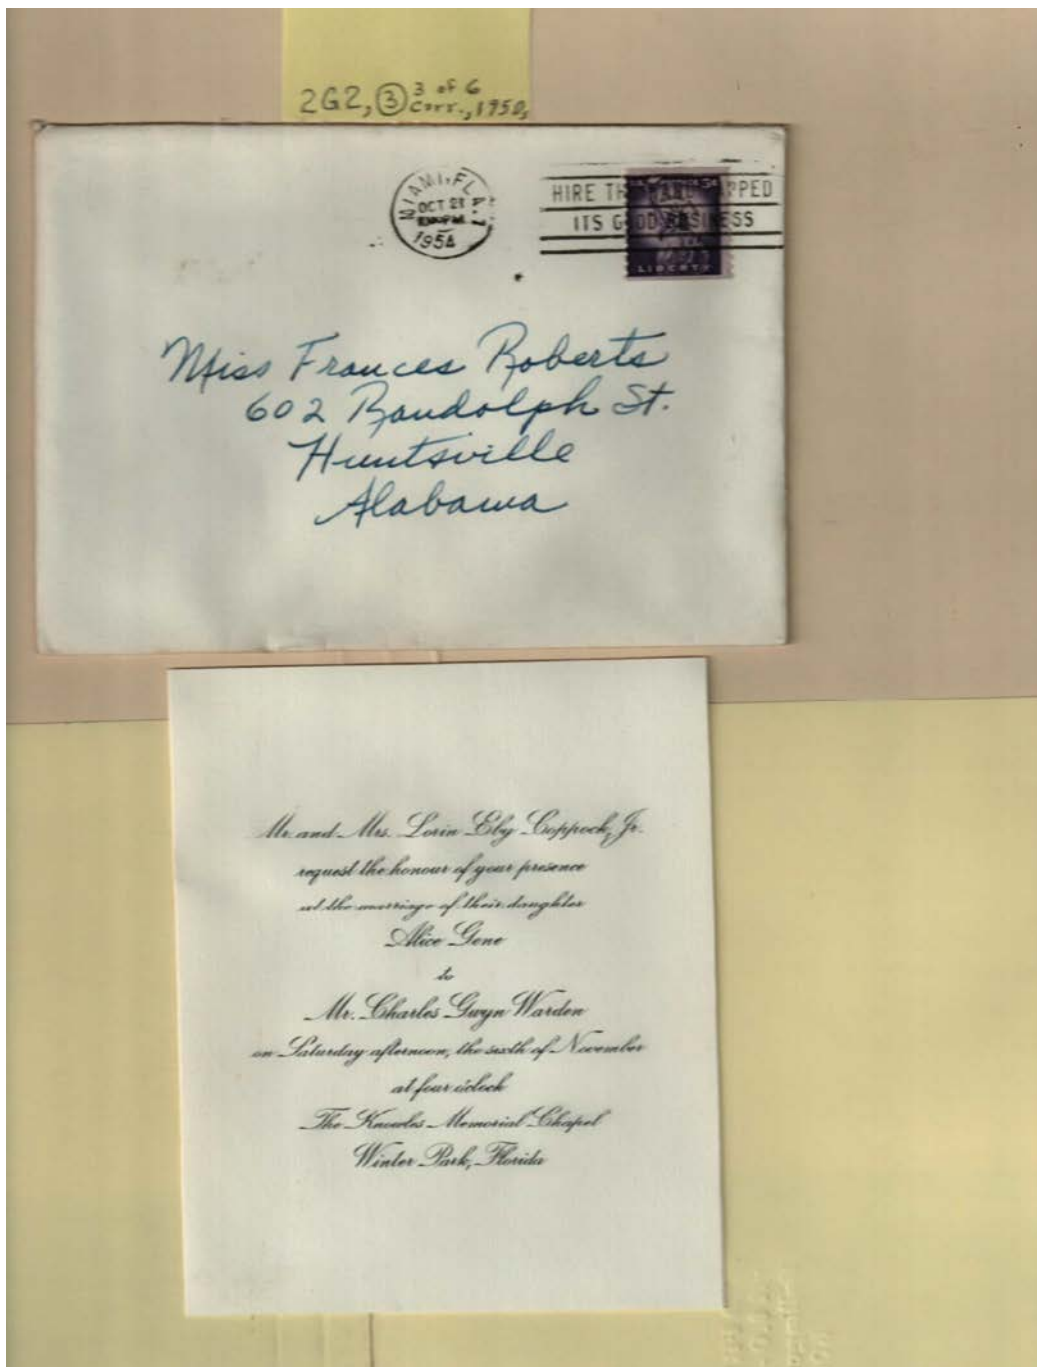 2G2, 3 3 of 6
Corr., 1950,
MIAMI, FLA.
OCT 21
PM
1954
HIRE THE HANDICAPPED
ITS GOOD BUSINESS
LIBERTY
Miss Frances Roberts
602 Randolph St.
Huntsville
Alabama
Mr. and Mrs. Lorin Eby Coppock, Jr.
request the honour of your presence
at the marriage of their daughter
Alice Gene
to
Mr. Charles Gwyn Warden
on Saturday afternoon, the sixth of November
at four o'clock
The Knowles Memorial Chapel
Winter Park, Florida